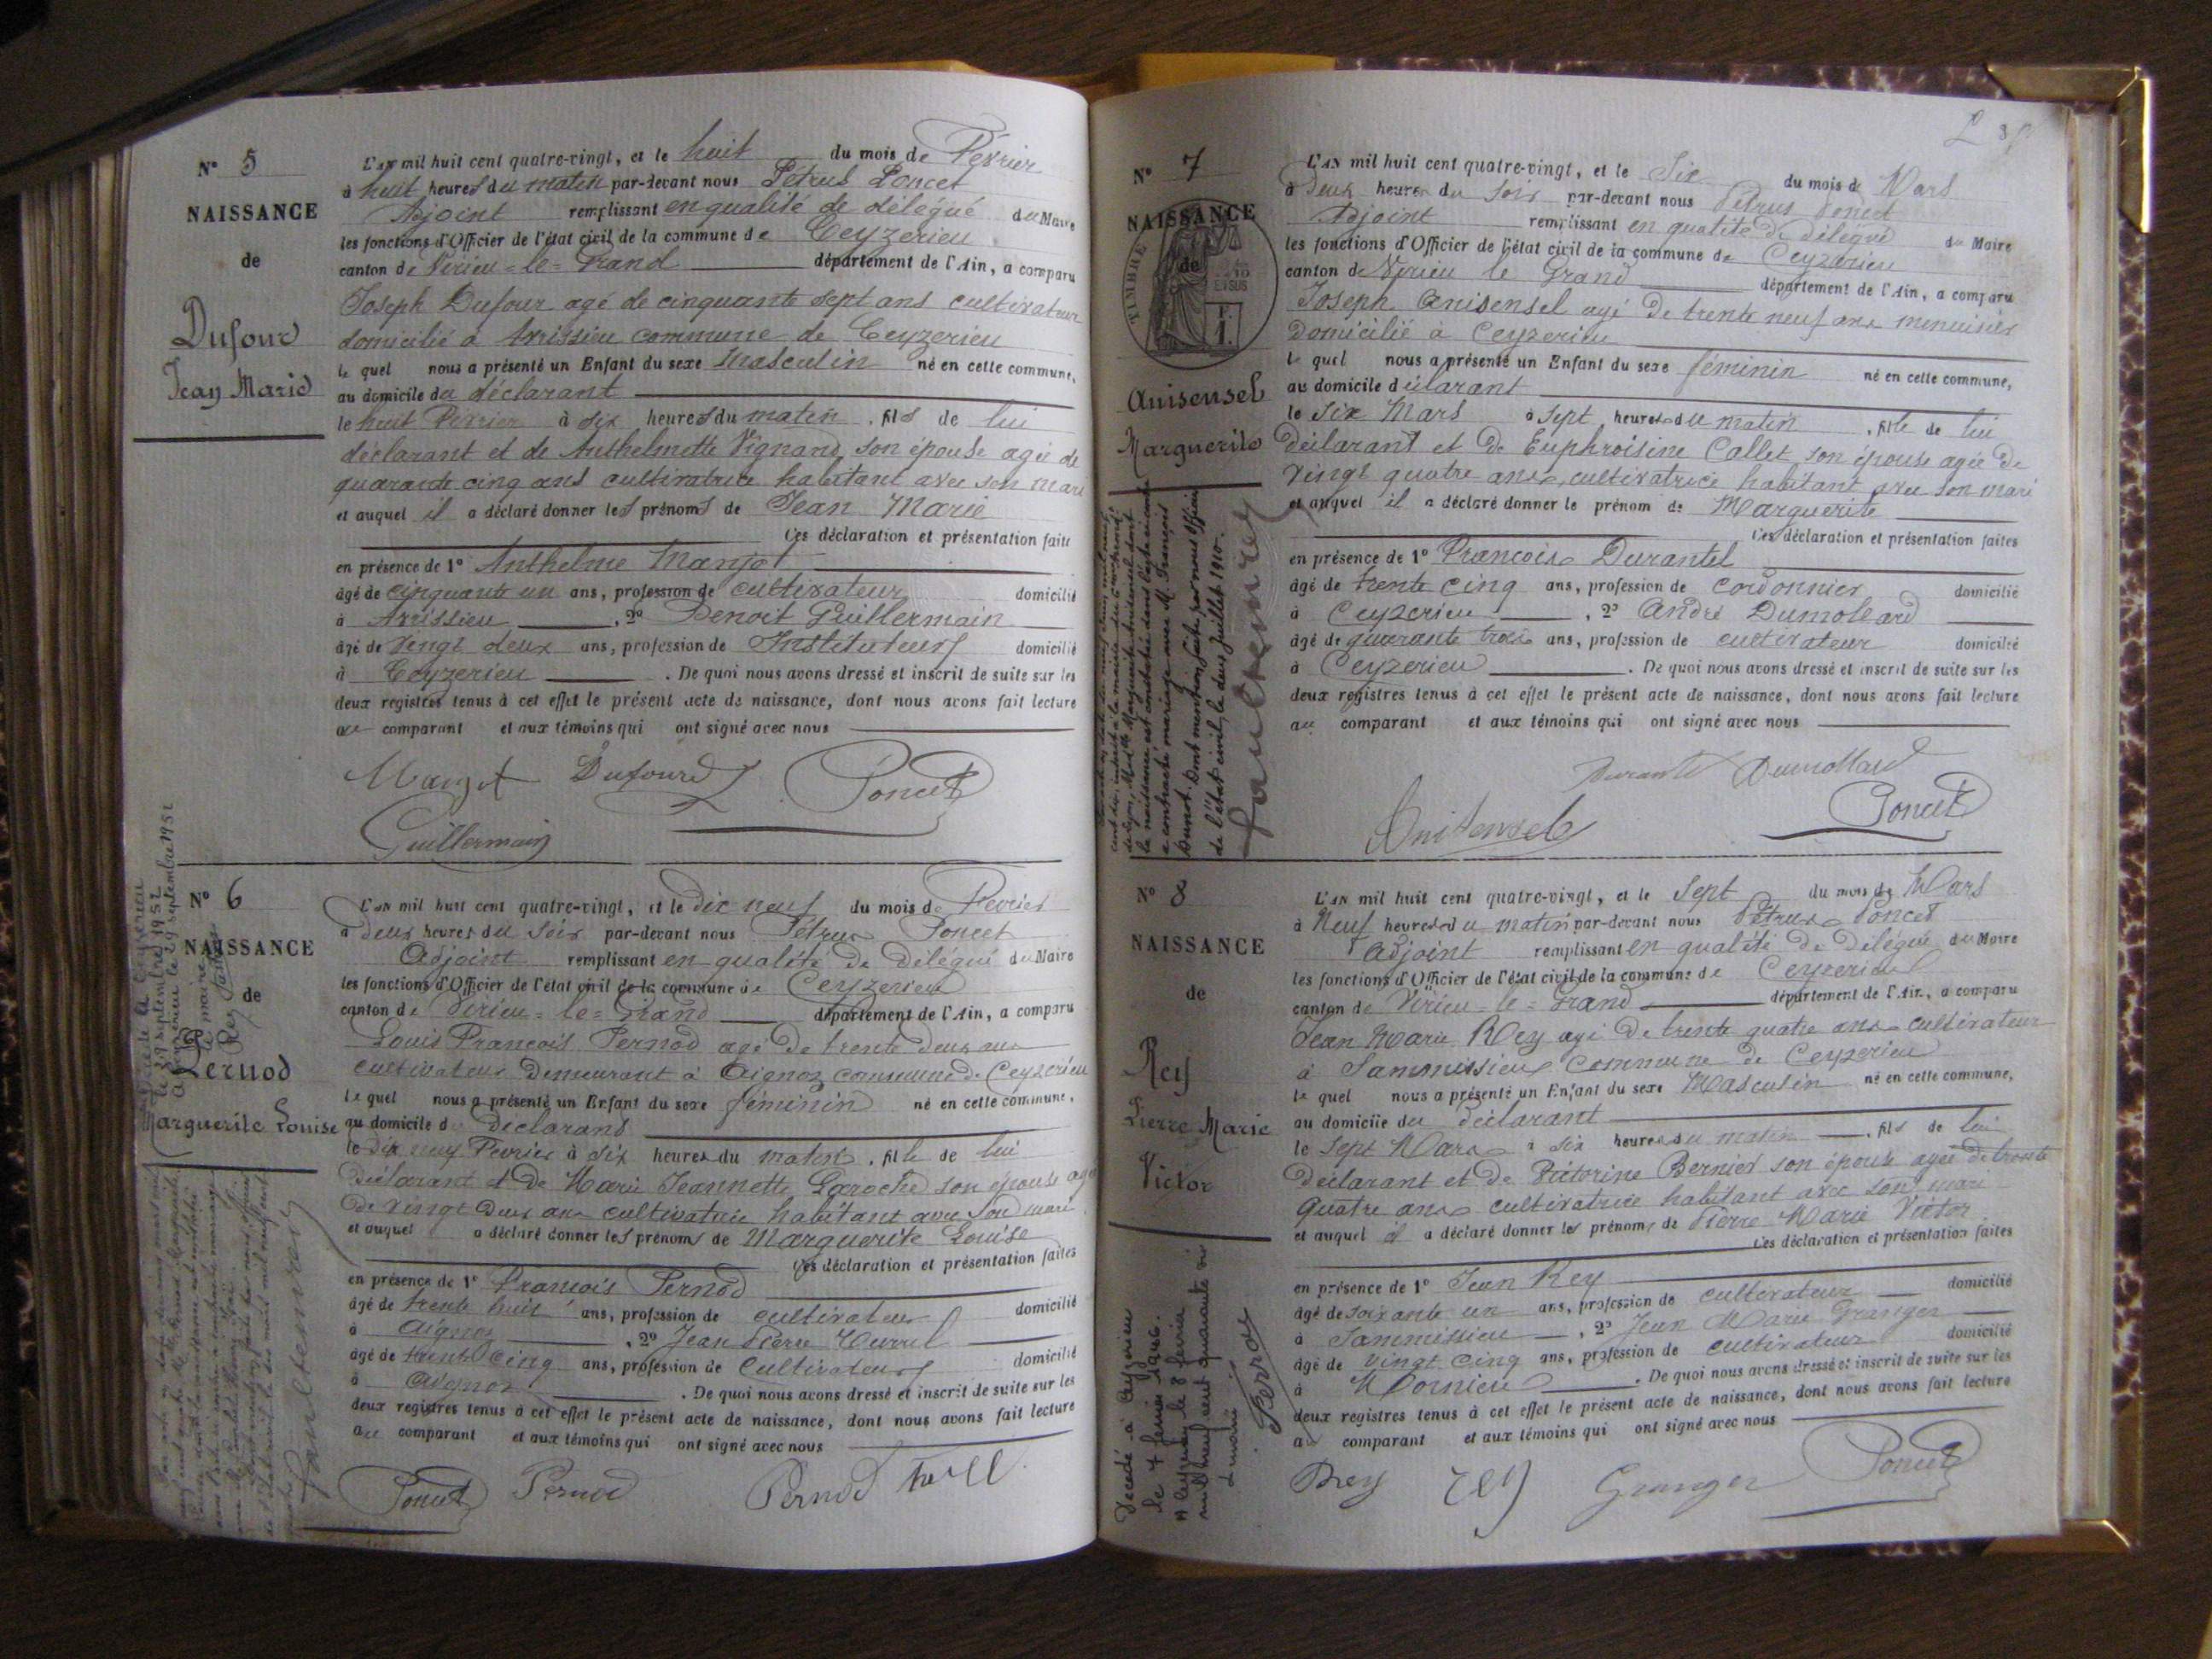 N° 5
NAISSANCE
de
Dufour
Jean Marie
L'AN mil huit cent quatre-vingt, et le huit du mois de Février
à huit heures du matin par-devant nous Pétrus Poncet
Adjoint remplissant en qualité de délégué du Maire
les fonctions d'Officier de l'état civil de la commune de Ceyzerieu
canton de Virieu-le-Grand département de l'Ain, a comparu
Joseph Dufour agé de cinquante sept ans cultivateur
domicilié à Avrissieu commune de Ceyzerieu
le quel nous a présenté un Enfant du sexe Masculin né en cette commune,
au domicile du déclarant
le huit Février à six heures du matin, fils de lui
déclarant et de Anthelmette Vignand son épouse agée de
quarante cinq ans cultivatrice habitant avec son mari
et auquel il a déclaré donner les prénoms de Jean Marie
Ces déclaration et présentation faites
en présence de 1° Anthelme Mangot
âgé de cinquante un ans, profession de cultivateur domicilié
à Avrissieu, 2° Benoit Guillermain
âgé de vingt deux ans, profession de Instituteur domicilié
à Ceyzerieu. De quoi nous avons dressé et inscrit de suite sur les
deux registres tenus à cet effet le présent acte de naissance, dont nous avons fait lecture
au comparant et aux témoins qui ont signé avec nous
Mangot Dufour Poncet
Guillermain
N° 6
NAISSANCE
de
Pernod
Marguerite Louise
L'AN mil huit cent quatre-vingt, et le dix neuf du mois de Fevrier
à deux heures du soir par-devant nous Pétrus Poncet
Adjoint remplissant en qualité de délégué du Maire
les fonctions d'Officier de l'état civil de la commune de Ceyzerieu
canton de Virieu-le-Grand département de l'Ain, a comparu
Louis François Pernod agé de trente deux ans
cultivateur demeurant à Aignoz commune de Ceyzerieu
le quel nous a présenté un Enfant du sexe féminin né en cette commune,
au domicile du Déclarant
le dix neuf Fevrier à six heures du matin, fille de lui
Déclarant et de Marie Jeannette Laroche son épouse agée
de vingt deux ans cultivatrice habitant avec son mari
et auquel a déclaré donner les prénoms de Marguerite Louise
Ces déclaration et présentation faites
en présence de 1° François Pernod
âgé de trente huit ans, profession de cultivateur domicilié
à Aignoz, 2° Jean Pierre
âgé de trente cinq ans, profession de Cultivateur domicilié
à Aignoz. De quoi nous avons dressé et inscrit de suite sur les
deux registres tenus à cet effet le présent acte de naissance, dont nous avons fait lecture
au comparant et aux témoins qui ont signé avec nous
Poncet Pernod Pernod
N° 7
NAISSANCE
de
TIMBRE
Anisensel
Marguerite
L'AN mil huit cent quatre-vingt, et le Six du mois de Mars
à deux heures du soir par-devant nous Pétrus Poncet
Adjoint remplissant en qualité de délégué du Maire
les fonctions d'Officier de l'état civil de la commune de Ceyzerieu
canton de Virieu le Grand département de l'Ain, a comparu
Joseph Anisensel agé de trente neuf ans menuisier
domicilié à Ceyzerieu
le quel nous a présenté un Enfant du sexe féminin né en cette commune,
au domicile déclarant
le six Mars à sept heures du matin, fille de lui
déclarant et de Euphroisine Callet son épouse agée de
vingt quatre ans, cultivatrice habitant avec son mari
et auquel il a déclaré donner le prénom de Marguerite
Ces déclaration et présentation faites
en présence de 1° François Durantel
âgé de trente cinq ans, profession de cordonnier domicilié
à Ceyzerieu, 2° André Dumolard
âgé de quarante trois ans, profession de cultivateur domicilié
à Ceyzerieu. De quoi nous avons dressé et inscrit de suite sur les
deux registres tenus à cet effet le présent acte de naissance, dont nous avons fait lecture
au comparant et aux témoins qui ont signé avec nous
Dumollard
Anisensel Poncet
N° 8
NAISSANCE
de
Rey
Pierre Marie
Victor
L'AN mil huit cent quatre-vingt, et le sept du mois de Mars
à Neuf heures du matin par-devant nous Pétrus Poncet
Adjoint remplissant en qualité de Délégué du Maire
les fonctions d'Officier de l'état civil de la commune de Ceyzerieu
canton de Virieu-le-Grand département de l'Ain, a comparu
Jean Marie Rey agé de trente quatre ans cultivateur
à Sammissieu Commune de Ceyzerieu
le quel nous a présenté un Enfant du sexe Masculin né en cette commune,
au domicile du déclarant
le sept Mars à six heures du matin, fils de lui
déclarant et de Victorine Bernier son épouse agée de trente
quatre ans cultivatrice habitant avec son mari
et auquel il a déclaré donner les prénoms de Pierre Marie Victor
Ces déclaration et présentation faites
en présence de 1° Jean Rey
âgé de soixante un ans, profession de cultivateur domicilié
à Sammissieu, 2° Jean Marie Granger
âgé de vingt cinq ans, profession de cultivateur domicilié
à Mornieu. De quoi nous avons dressé et inscrit de suite sur les
deux registres tenus à cet effet le présent acte de naissance, dont nous avons fait lecture
au comparant et aux témoins qui ont signé avec nous
Rey Rey Granger Poncet
Décédé à Ceyzerieu
le 7 février 1946.
A Ceyzerieu le 8 février
mil neuf cent quarante six